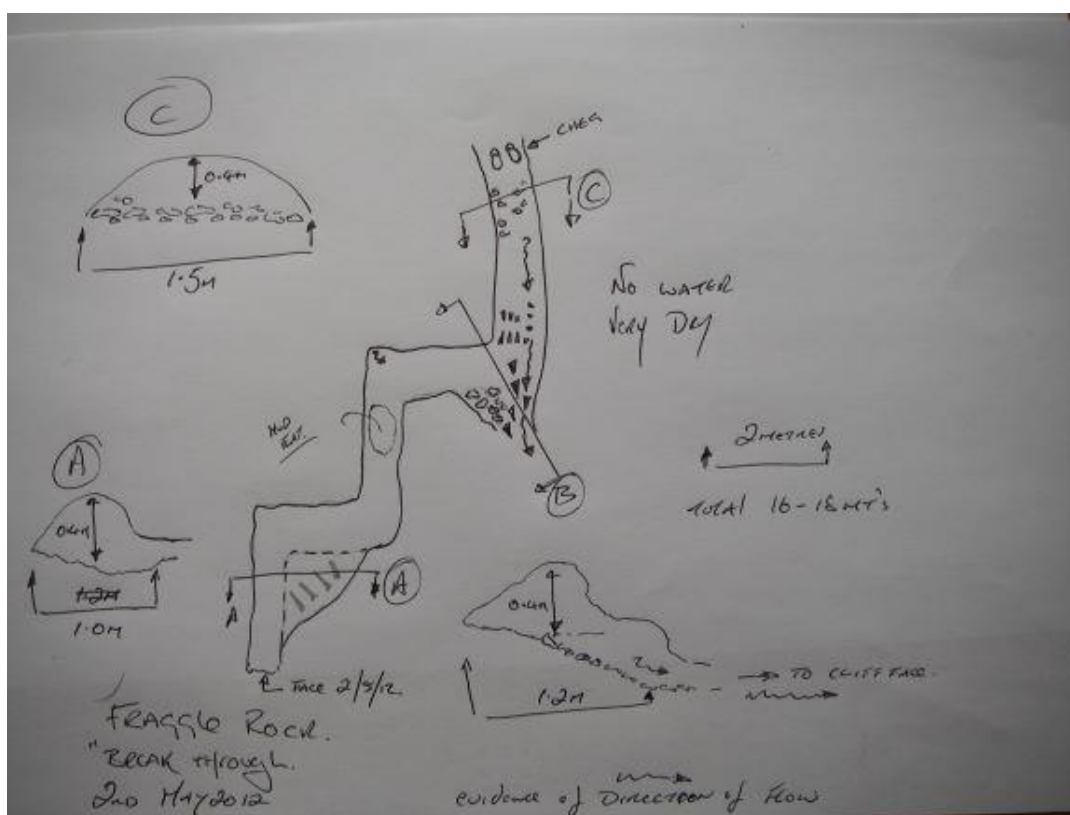 C
0.4M
1.5M
CHEG
C
No WATER
Very Dry
MUD
FLAT.
B
2 METRES
TOTAL 16-18 MT's
A
0.4M
1.2M
1.0M
A
A
FACE 2/5/12
0.4M
1.2M
TO CLIFF FACE.
FRAGGLE ROCK.
"BREAK through.
2ND MAY 2012
evidence of DIRECTION of Flow